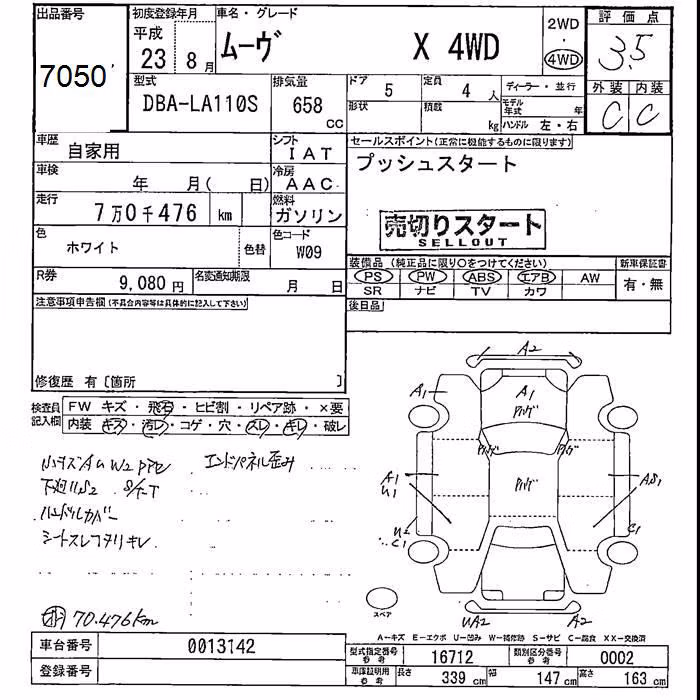 出品番号 初度登録年月 車名・グレード 2WD 評価点
7050 平成 23 8月 ムーヴ X 4WD ・ 4WD 3.5
型式 排気量 ドア 5 定員 4人 ディーラー・並行 外装 内装
DBA-LA110S 658 CC 形状 積載 kg モデル年式 年 ハンドル 左・右 C C
車歴 自家用 シフト IAT セールスポイント(正常に機能するものに限ります)
車検 年 月( 日) 冷房 AAC プッシュスタート
走行 7万0千476 km 燃料 ガソリン
売切りスタート
SELLOUT
色 ホワイト 色替 色コード W09
装備品(純正品に限り○をつけてください) 新車保証書
R券 9,080円 名変通知期限 月 日 PS PW ABS エアB AW 有・無
SR ナビ TV カワ
注意事項申告欄(不具合内容等は具体的に記入して下さい) 後日品
修復歴 有〔箇所 〕
検査員記入欄 FW キズ・飛石・ヒビ割・リペア跡・×要
内装 キズ・汚レ・コゲ・穴・スレ・キレ・破レ
小キズAU W2 PPセ エンドパネル歪み
下廻りS2 S/T-T
ハンドルカバー
シートスレヘタリキレ
70.476km
A2
A1 A1
A1 U1 AS1
C1 C1
スペア UA2 A2
A−キズ E−エクボ U−凹み W−補修跡 S−サビ C−腐食 XX−交換済
車台番号 0013142
型式指定番号 参考 16712 類別区分番号 参考 0002
登録番号
車庫証明用 参考 長さ 339cm 幅 147cm 高さ 163cm